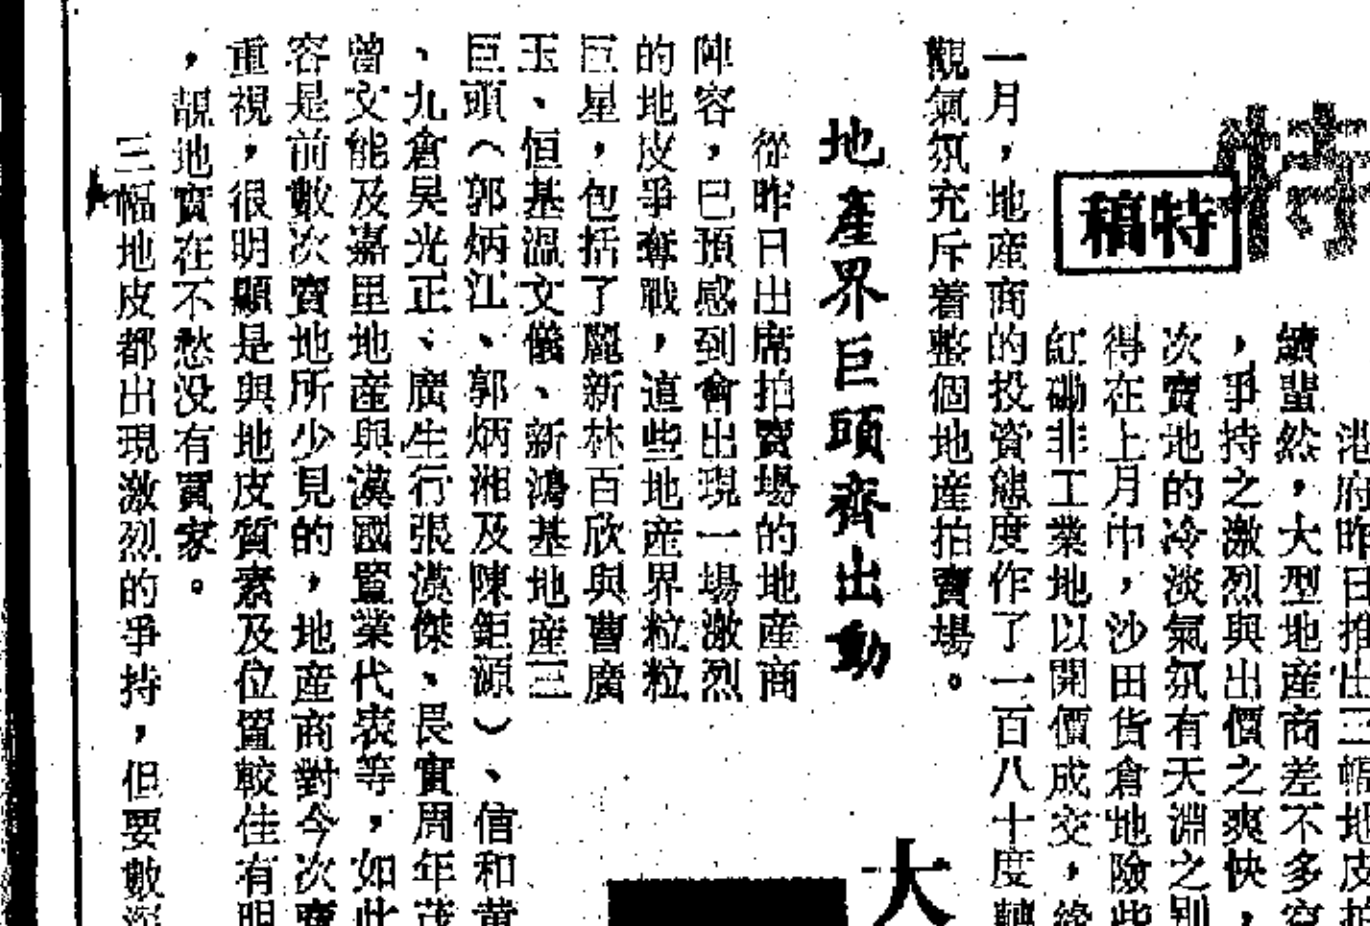 特稿
港府昨日推出三幅地皮拍
續蜚然，大型地產商差不多
，爭持之激烈與出價之爽快，
次賣地的冷淡氣氛有天淵之別
得在上月中，沙田貨倉地險些
紅磡非工業地以開價成交，
一月，地產商的投資態度作了一百八十度轉
觀氣氛充斥着整個地產拍賣場。
地產界巨頭齊出動
從昨日出席拍賣場的地產商
陣容，已預感到會出現一場激烈
的地皮爭奪戰，這些地產界粒粒
巨星，包括了麗新林百欣與曹廣
玉、恒基溫文儀、新鴻基地產三
巨頭（郭炳江、郭炳湘及陳鉅源）、信和黄
、九倉吳光正、廣生行張漢傑、長實周年茂
曾文能及嘉里地產與漢國置業代表等，如此
容是前數次賣地所少見的，地產商對今次賣
重視，很明顯是與地皮質素及位置較佳有明
，靚地實在不愁没有買家。
三幅地皮都出現激烈的爭持，但要數
大